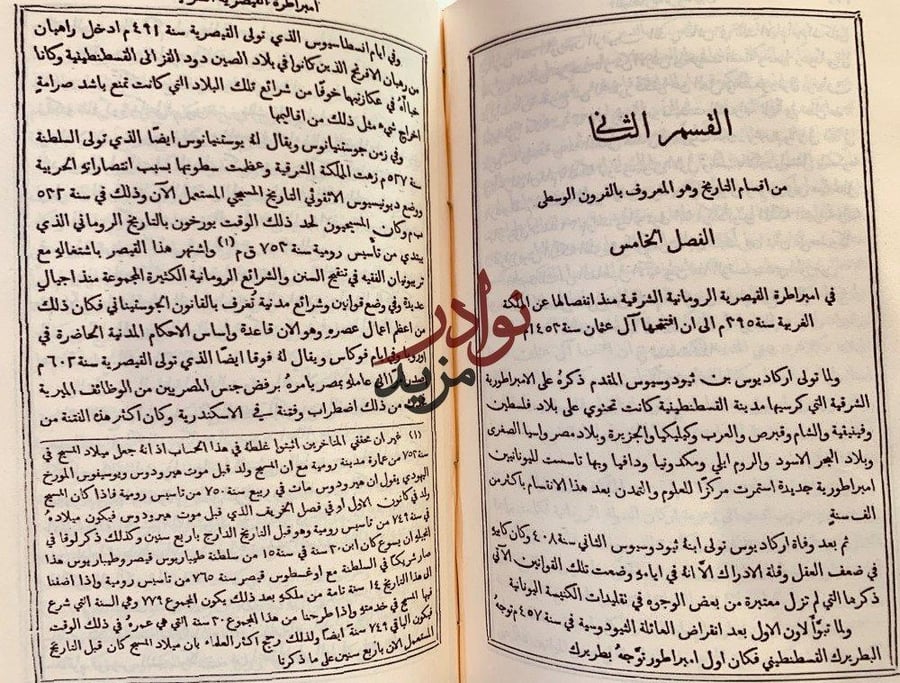 القسم الثاني
من اقسام التاريخ وهو المعروف بالقرون الوسطى
الفصل الخامس
في امبراطرة القيصرية الرومانية الشرقية منذ انفصالها عن المملكة
الغربية سنة ٣٩٥م الى ان افتتحها آل عثمان سنة ١٤٥٣م
ولما تولى اركاديوس بن ثيودوسيوس المتقدم ذكرهُ على الامبراطورية
الشرقية التي كرسيها مدينة القسطنطينية كانت تحتوي على بلاد فلسطين
وفينيقية والشام وقبرص والعرب وكيليكيا والجزيرة وبلاد مصر واسيا الصغرى
وبلاد البحر الاسود والروم ايلي ومكدونيا ودافيا وبها تاسست لليونانيين
امبراطورية جديدة استمرت مركزًا للعلوم والتمدن بعد هذا الانقسام باكثر من
الف سنةٍ
ثم بعد وفاة اركاديوس تولى ابنهُ ثيودوسيوس الثاني سنة ٤٠٨ وكان كابيهِ
في ضعف العقل وقلة الادراك الَّا انهُ في ايامهِ وضعت تلك القوانين الآتي
ذكرها التي لم تزل معتبرة من بعض الوجوه في تقليدات الكنيسة اليونانية
ولما تبوَّأ لاون الاول بعد انقراض العائلة الثيودوسية في سنة ٤٥٧م توجهُ
البطريرك القسطنطيني فكان اول امبراطور توَّجهُ بطريرك
امبراطرة القيصرية
وفي ايام انسطاسيوس الذي تولى القيصرية سنة ٤٩١م ادخل راهبان
من رهبان الافرنج الذين كانوا في بلاد الصين دود القز الى القسطنطينية وكانا
خباآهُ في عكازيتها خوفًا من شرائع تلك البلاد التي كانت تمنع باشد صرامةٍ
اخراج شيء مثل ذلك من اقاليمها
وفي زمن جوستنيانوس ويقال لهُ يوستنيانوس ايضًا الذي تولى السلطنة
سنة ٥٢٧م زهت المملكة الشرقية وعظمت سطوتها بسبب انتصاراتهِ الحربية
ووضع ديونيسيوس الاثقوني التاريخ المسيحي المستعمل الآن وذلك في سنة ٥٣٣
ب م وكان المسيحيون لحد ذلك الوقت يورخون بالتاريخ الروماني الذي
يبتدي من تأسيس رومية سنة ٧٥٣ ق م (١) واشتهر هذا القيصر باشتغالهِ مع
تريبونيان الفقيه في تنقيح السنن والشرائع الرومانية الكثيرة المجموعة منذ اجيال
عديدة وفي وضع قوانين وشرائع مدنية تعرف بالقانون الجوستنياني فكان ذلك
من اعظم اعمال عصرهِ وهو الان قاعدة واساس الاحكام المدنية الحاضرة في
اوروبا وفي ايام فوكاس ويقال لهُ فوقا ايضًا الذي تولى القيصرية سنة ٦٠٣م
الى عاملهِ بمصر يامرهُ برفض جنس المصريين من الوظائف الميرية
من ذلك اضطراب وفتنة في الاسكندرية وكان اكثر هذه الفتنة من
(١) غير ان محققي المتاخرين اثبتوا غلطهُ في هذا الحساب اذ انهُ جعل ميلاد المسيح في
سنة ٧٥٣ من عمارة مدينة رومية مع ان المسيح ولد قبل موت هيرودوس ويوسيفوس المورخ
اليهودي يقول ان هيرودوس مات في ربيع سنة ٧٥٠ من تاسيس رومية فاذا كان المسيح
ولد في كانون الاول او في فصل الخريف الذي قبل موت هيرودوس فيكون ميلادهُ
في سنة ٧٤٩ من تاسيس رومية وهو قبل التاريخ الدارج باربع سنين وكذلك ذكر لوقا في
انجيلهِ ان يسوع كان ابن ٣٠ سنة في سنة ١٥ من سلطنة طيباريوس قيصر وطيباريوس هذا
صار شريكًا في السلطنة مع اوغسطوس قيصر سنة ٧٦٥ من تاسيس رومية واذا اضفنا
الى هذا التاريخ ١٤ سنة تامة من ملكهِ بعد ذلك يكون المجموع ٧٧٩ وهي السنة التي شرع
فيها المسيح في خدمتهِ واذا طرحنا من هذا المجموع ٣٠ سنة التي هي عمرهُ في ذلك الوقت
فيكون الباقي ٧٤٩ سنة ايضًا ولذلك رجح اكثر العلماء بان ميلاد المسيح كان قبل التاريخ
المستعمل الان باربع سنين على ما ذكرنا
نوادر
مزيه